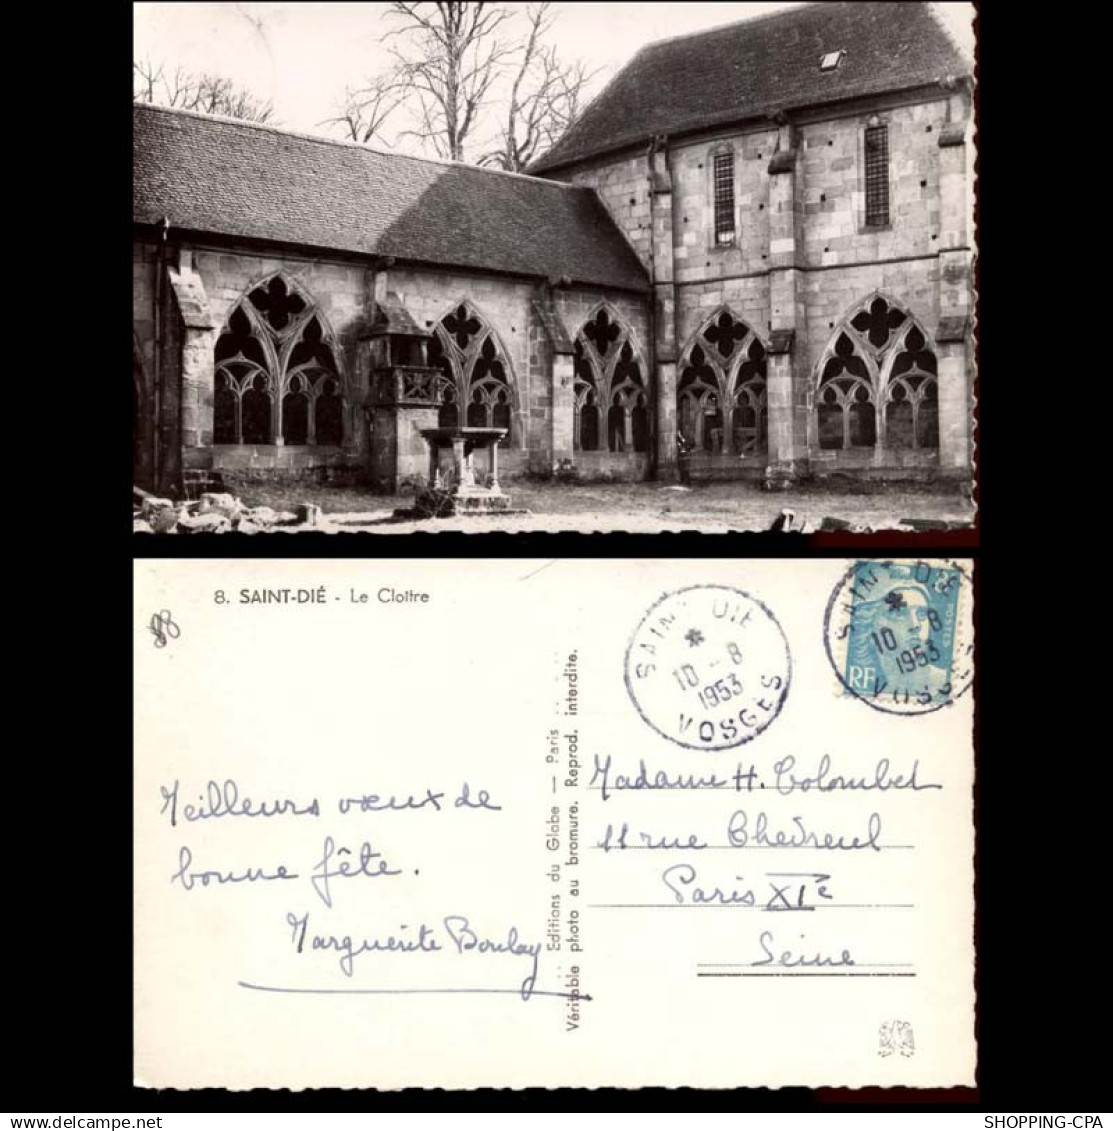 8. SAINT-DIÉ - Le Cloître
88
SAINT DIÉ
*
10 - 8
1953
VOSGES
SAINT DIÉ
*
10 - 8
1953
VOSGES
RF
Editions du Globe — Paris
Véritable photo au bromure. Reprod. interdite.
Meilleurs vœux de
bonne fête.
Marguerite Boulay
Madame H. Colombel
11 rue Chevreul
Paris XIe
Seine
SHOPPING-CPA